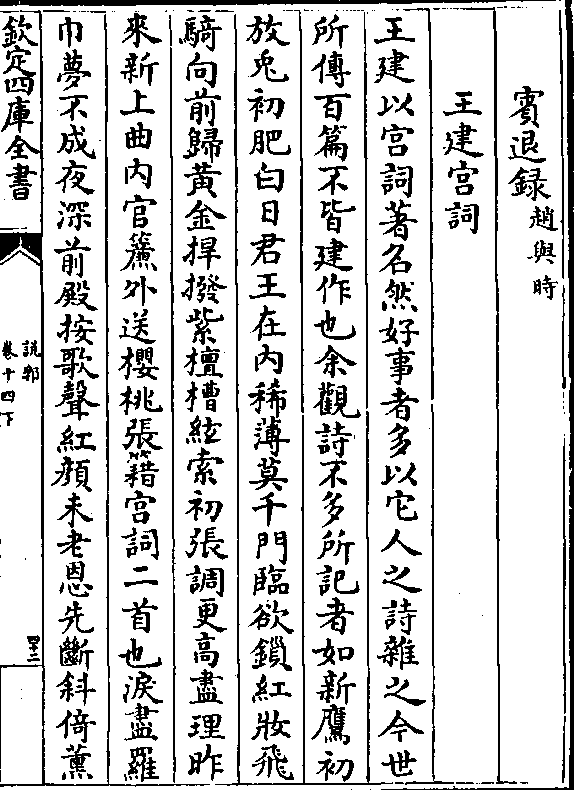 賓退錄趙與時
王建宮詞
王建以宮詞著名然好事者多以它人之詩雜之今世
所傳百篇不皆建作也余觀詩不多所記者如新鷹初
放兎初肥白日君王在內稀薄莫千門臨欲鎖紅妝飛
騎向前歸黃金捍撥紫檀槽絃索初張調更高盡理昨
來新上曲內官簾外送櫻桃張籍宮詞二首也淚盡羅
巾夢不成夜深前殿按歌聲紅顔未老恩先斷斜倚薰
欽定四庫全書
說郛
卷十四下
四十二